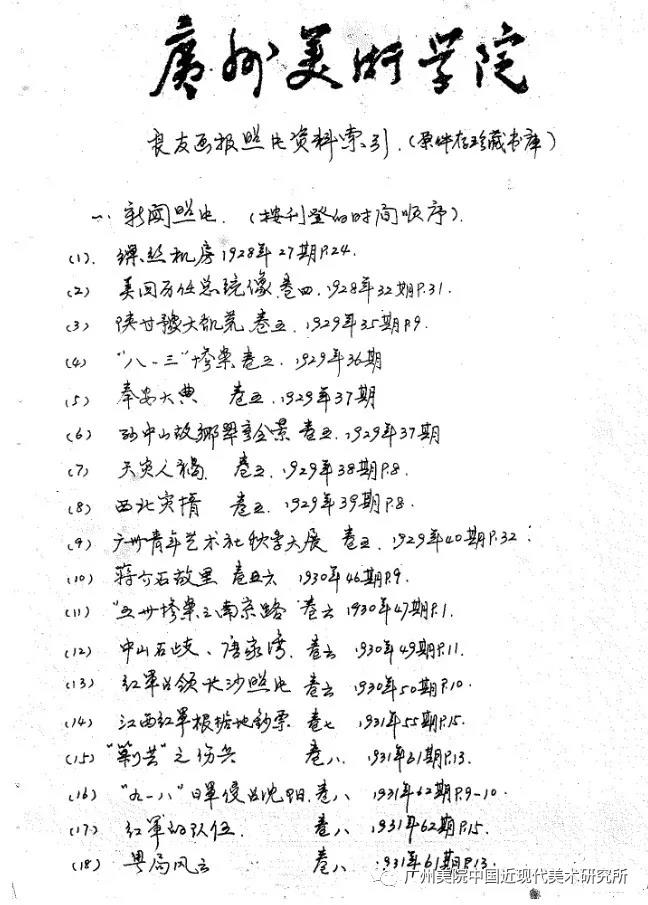 廣州美術学院
良友画报照片资料索引.(原件存珍藏书库)
一、新闻照片.(按刊登的时间顺序).
(1). 缫丝机房 1928年27期P.24.
(2) 美国历任总统像.卷四.1928年32期P.31.
(3) 陕甘豫大饥荒 卷五.1929年35期P.9.
(4) "八·一三"惨案卷五.1929年36期
(5) 奉安大典 卷五.1929年37期
(6) 孙中山故鄉翠亨全景 卷五.1929年37期
(7) 天灾人禍. 卷五.1929年38期P.8.
(8) 西北灾情 卷五.1929年39期P.8.
(9) 广州青年艺术社秋季大展 卷五.1929年40期P.32
(10) 蒋介石故里 卷五六 1930年46期P.9.
(11) "五卅惨案之南京路" 卷六 1930年47期P.1.
(12) 中山石岐、唐家湾. 卷六 1930年49期P.11.
(13) 红軍占领长沙照片 卷六 1930年50期P.10.
(14) 江西红軍根据地鈔票 卷七 1931年55期P.15.
(15) "剿共"之伤兵 卷八. 1931年61期P.13.
(16) "九一八"日軍侵占沈阳.卷八 1931年62期P.9-10.
(17) 红軍的队伍. 卷八 1931年62期P.15.
(18) 粤局风云 卷八 1931年61期P.13.
广州美院中国近现代美术研究所